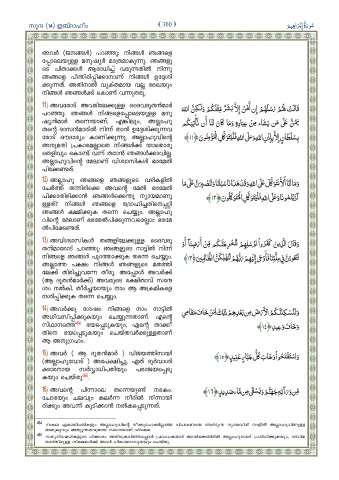 സൂറ: (14) ഇബ്റാഹീം
300
سُورَةُ إِبْرَاهِيم
അവർ (ജനങ്ങൾ) പറഞ്ഞു: നിങ്ങൾ ഞങ്ങളെ
പ്പോലെയുള്ള മനുഷ്യർ മാത്രമാകുന്നു. ഞങ്ങളു
ടെ പിതാക്കൾ ആരാധിച്ച് വരുന്നതിൽ നിന്നു
ഞങ്ങളെ പിന്തിരിപ്പിക്കാനാണ് നിങ്ങൾ ഉദ്ദേശി
ക്കുന്നത്. അതിനാൽ വ്യക്തമായ വല്ല രേഖയും
നിങ്ങൾ ഞങ്ങൾക്ക് കൊണ്ട് വന്നുതരൂ.
11) അവരോട് അവരിലേക്കുള്ള ദൈവദൂതൻമാർ
പറഞ്ഞു: ഞങ്ങൾ നിങ്ങളെപ്പോലെയുള്ള മനു
ഷ്യൻമാർ തന്നെയാണ്. എങ്കിലും, അല്ലാഹു
തന്റെ ദാസൻമാരിൽ നിന്ന് താൻ ഉദ്ദേശിക്കുന്നവ
രോട് ഔദാര്യം കാണിക്കുന്നു. അല്ലാഹുവിന്റെ
അനുമതി പ്രകാരമല്ലാതെ നിങ്ങൾക്ക് യാതൊരു
തെളിവും കൊണ്ട് വന്ന് തരാൻ ഞങ്ങൾക്കാവില്ല.
അല്ലാഹുവിന്റെ മേലാണ് വിശ്വാസികൾ ഭരമേൽ
പിക്കേണ്ടത്.
قَالَتْ لَهُمْ رُسُلُهُمْ إِن نَّحْنُ إِلَّا بَشَرٌ مِّثْلُكُمْ وَلَٰكِنَّ اللَّهَ
يَمُنُّ عَلَىٰ مَن يَشَاءُ مِنْ عِبَادِهِ وَمَا كَانَ لَنَا أَن نَّأْتِيَكُم
بِسُلْطَانٍ إِلَّا بِإِذْنِ اللَّهِ وَعَلَى اللَّهِ فَلْيَتَوَكَّلِ الْمُؤْمِنُونَ ﴿١١﴾
12) അല്ലാഹു ഞങ്ങളെ ഞങ്ങളുടെ വഴികളിൽ
ചേർത്ത് തന്നിരിക്കെ അവന്റെ മേൽ ഭരമേൽ
പിക്കാതിരിക്കാൻ ഞങ്ങൾക്കെന്തു ന്യായമാണു
ള്ളത്? നിങ്ങൾ ഞങ്ങളെ ദ്രോഹിച്ചതിനെപ്പറ്റി
ഞങ്ങൾ ക്ഷമിക്കുക തന്നെ ചെയ്യും. അല്ലാഹു
വിന്റെ മേലാണ് ഭരമേൽപിക്കുന്നവരെല്ലാം ഭരമേ
ൽപിക്കേണ്ടത്.
وَمَا لَنَا أَلَّا نَتَوَكَّلَ عَلَى اللَّهِ وَقَدْ هَدَانَا سُبُلَنَا وَلَنَصْبِرَنَّ عَلَىٰ مَا
آذَيْتُمُونَا وَعَلَى اللَّهِ فَلْيَتَوَكَّلِ الْمُتَوَكِّلُونَ ﴿١٢﴾
13) അവിശ്വാസികൾ തങ്ങളിലേക്കുള്ള ദൈവദൂ
തൻമാരോട് പറഞ്ഞു: ഞങ്ങളുടെ നാട്ടിൽ നിന്ന്
നിങ്ങളെ ഞങ്ങൾ പുറത്താക്കുക തന്നെ ചെയ്യും.
അല്ലാത്ത പക്ഷം നിങ്ങൾ ഞങ്ങളുടെ മതത്തി
ലേക്ക് തിരിച്ചുവന്നേ തീരൂ. അപ്പോൾ അവർക്ക്
(ആ ദൂതൻമാർക്ക്) അവരുടെ രക്ഷിതാവ് സന്ദേ
ശം നൽകി. തീർച്ചയായും നാം ആ അക്രമികളെ
നശിപ്പിക്കുക തന്നെ ചെയ്യും.
وَقَالَ الَّذِينَ كَفَرُوا لِرُسُلِهِمْ لَنُخْرِجَنَّكُم مِّنْ أَرْضِنَا أَوْ
لَتَعُودُنَّ فِي مِلَّتِنَا فَأَوْحَىٰ إِلَيْهِمْ رَبُّهُمْ لَنُهْلِكَنَّ الظَّالِمِينَ ﴿١٣﴾
14) അവർക്കു ശേഷം നിങ്ങളെ നാം നാട്ടിൽ
അധിവസിപ്പിക്കുകയും ചെയ്യുന്നതാണ്. എന്റെ
സ്ഥാനത്തെ ഭയപ്പെടുകയും, എന്റെ താക്കീ
തിനെ ഭയപ്പെടുകയും ചെയ്തവർക്കുള്ളതാണ്
ആ അനുഗ്രഹം.
وَلَنُسْكِنَنَّكُمُ الْأَرْضَ مِن بَعْدِهِمْ ذَٰلِكَ لِمَنْ خَافَ مَقَامِي
وَخَافَ وَعِيدِ ﴿١٤﴾
15) അവർ (ആ ദൂതൻമാർ) വിജയത്തിനായി
(അല്ലാഹുവോട്) അപേക്ഷിച്ചു. ഏത് ദുർവാശി
ക്കാരനായ സർവ്വാധിപതിയും പരാജയപ്പെടു
കയും ചെയ്തു.
وَاسْتَفْتَحُوا وَخَابَ كُلُّ جَبَّارٍ عَنِيدٍ ﴿١٥﴾
16) അവന്റെ പിന്നാലെ തന്നെയുണ്ട് നരകം.
ചോരയും ചലവും കലർന്ന നീരിൽ നിന്നായി
രിക്കും അവന്ന് കുടിക്കാൻ നൽകപ്പെടുന്നത്.
مِّن وَرَائِهِ جَهَنَّمُ وَيُسْقَىٰ مِن مَّاءٍ صَدِيدٍ ﴿١٦﴾